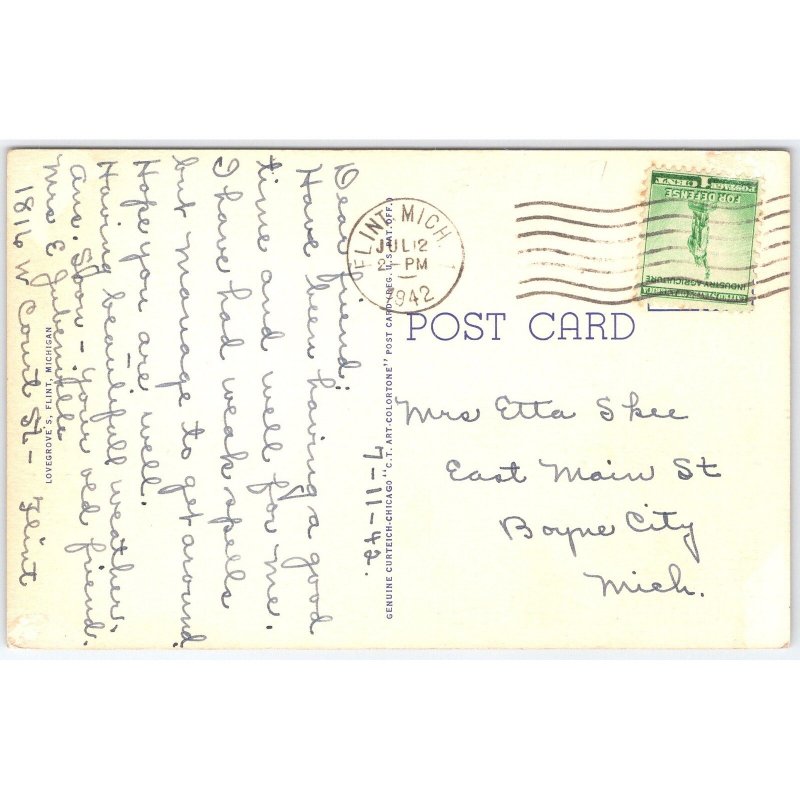 7-11-42.
Dear friend:
Have been having a good
time and well for me.
I have had weak spells
but manage to get around.
Hope you are well.
Having beautifull weather.
Ans. Soon - Your old friend.
Mrs E
1816 W Court St - Flint
LOVEGROVE'S, FLINT, MICHIGAN
GENUINE CURTEICH-CHICAGO "C.T. ART-COLORTONE" POST CARD (REG. U.S. PAT. OFF.)
FLINT, MICH.
JUL 12
2-PM
1942
1 CENT
POSTAGE
FOR DEFENSE
INDUSTRY AGRICULTURE
POST CARD
Mrs Etta Skee
East Main St
Boyne City
Mich.